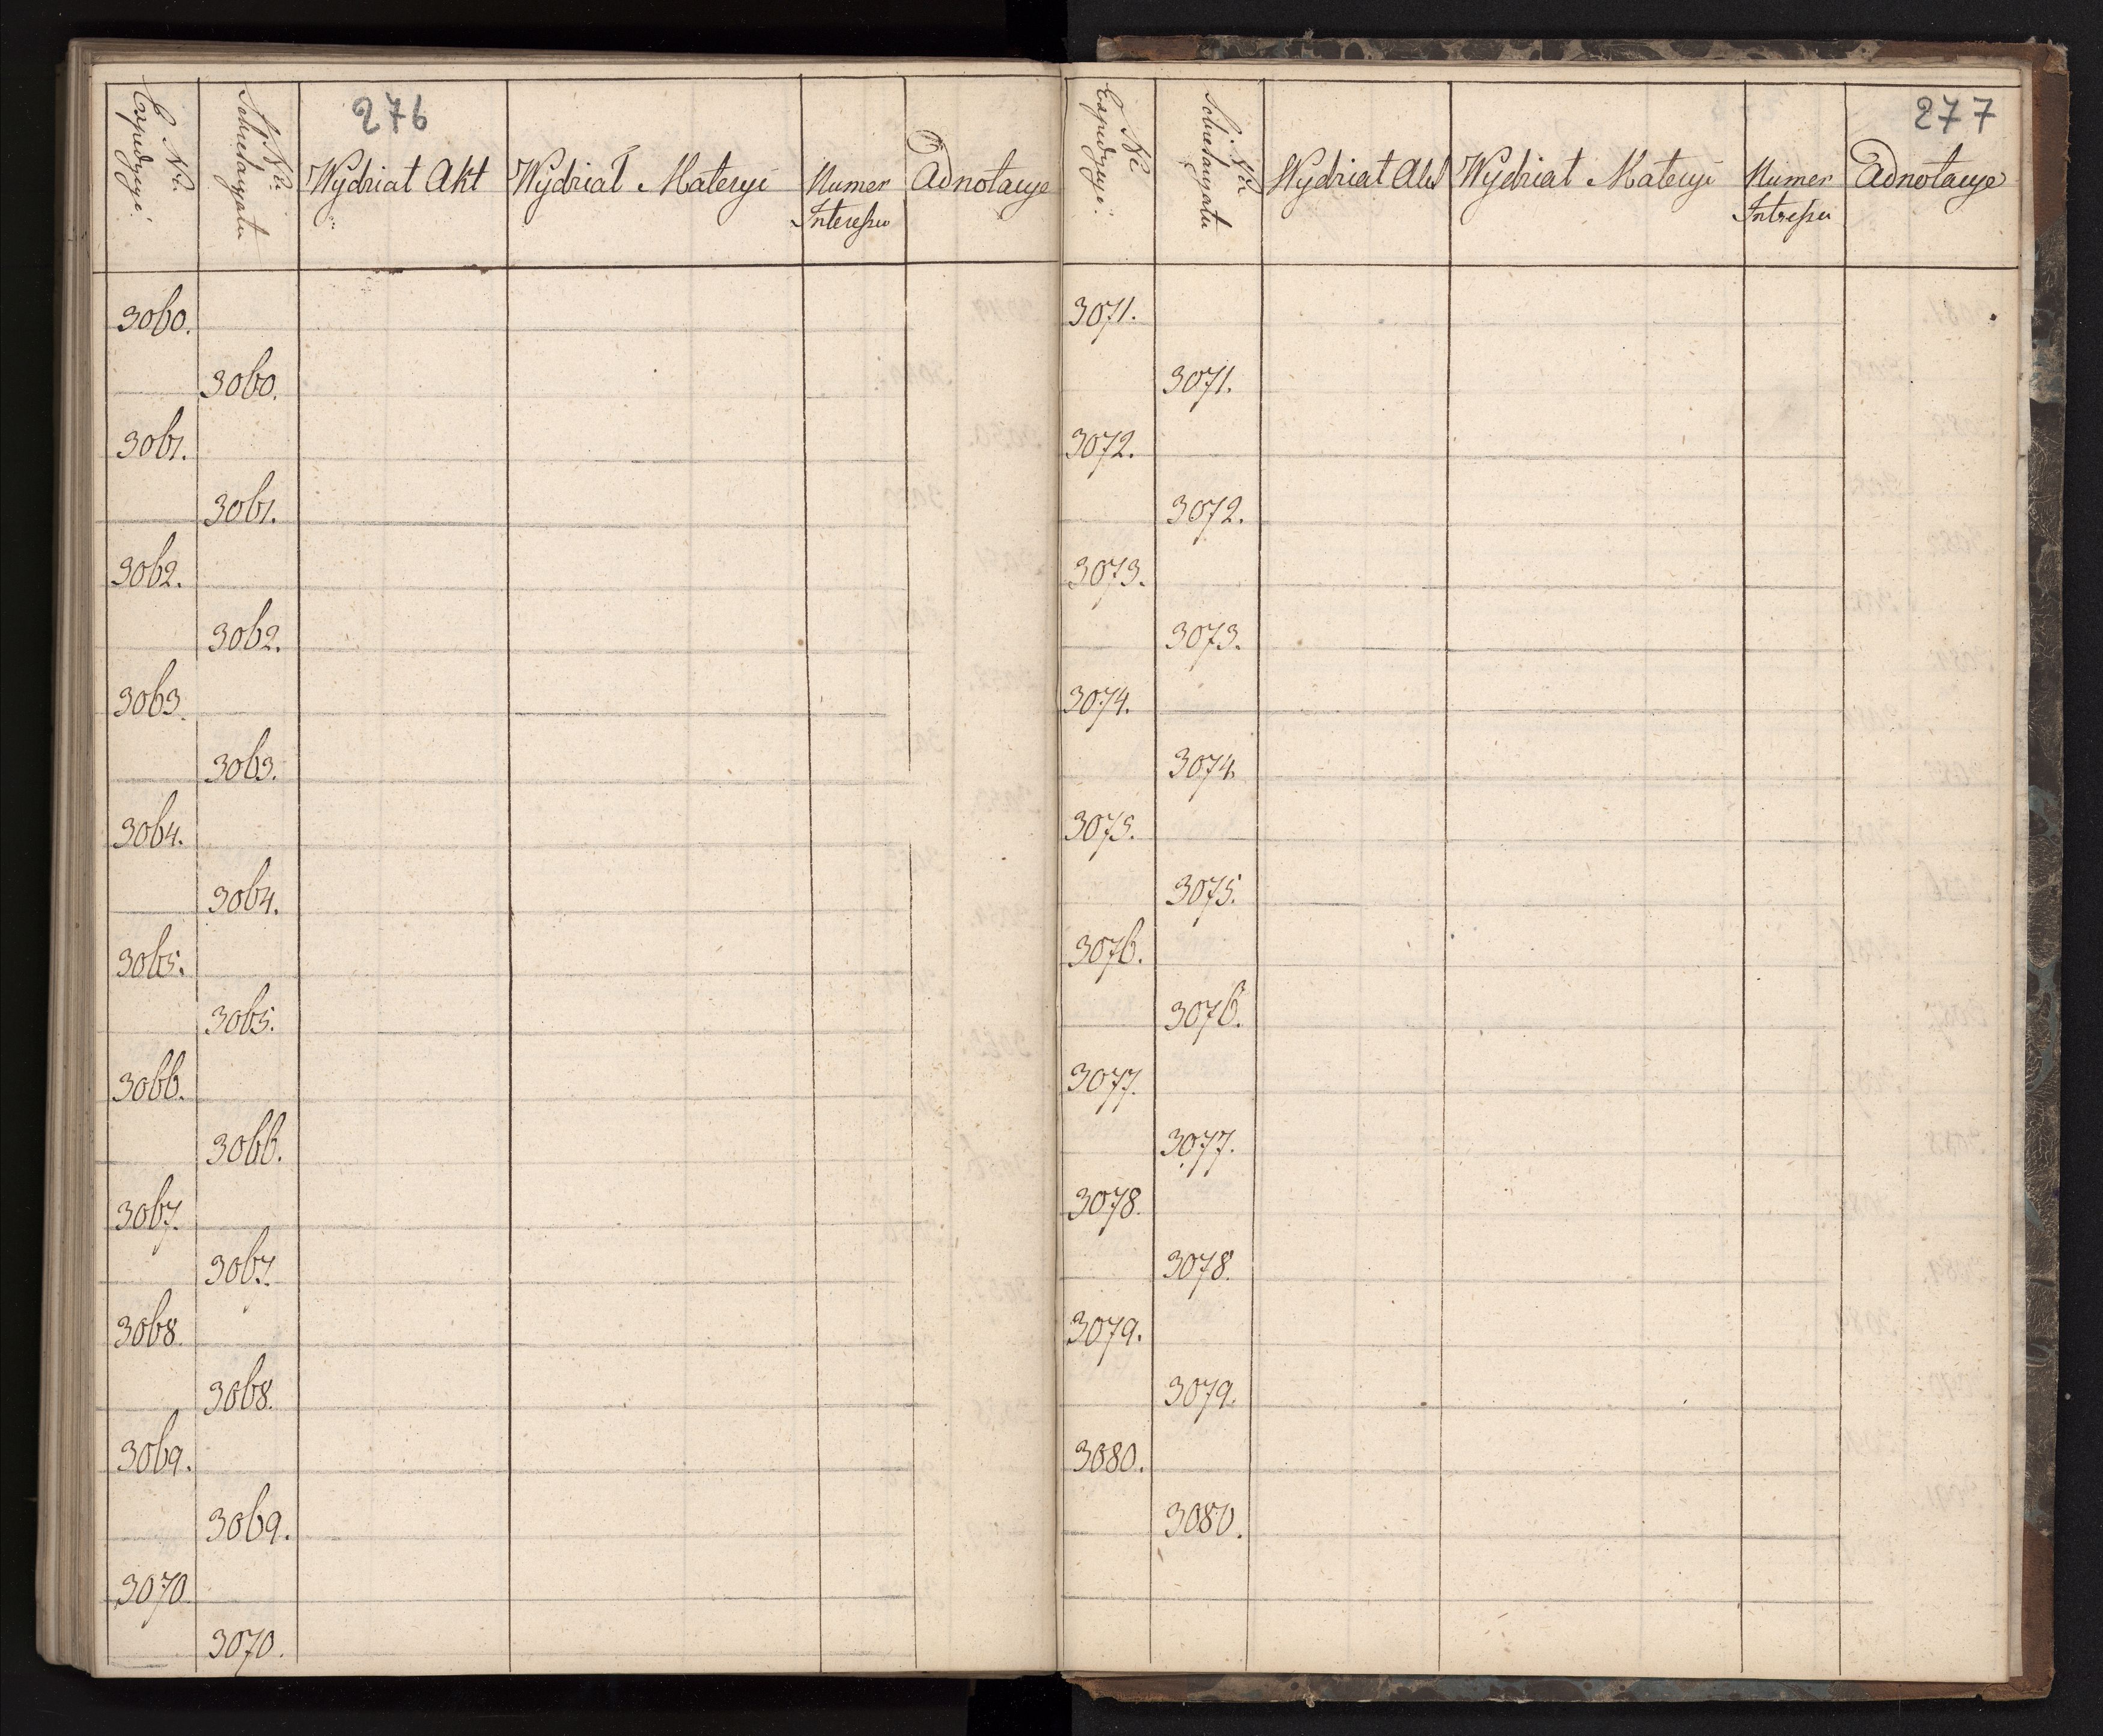 276
No Expedycyi.
No Solicitanta
Wydział Akt
Wydział Materyi
Numer
Interessu
Adnotacye
3060.
3060.
3061.
3061.
3062.
3062.
3063.
3063.
3064.
3064.
3065.
3065.
3066.
3066.
3067.
3067.
3068.
3068.
3069.
3069.
3070.
3070.
277
No Expedycyi.
Wydział Akt
Wydział Materyi
Numer
Intressu
Adnotacye
3071.
3071.
3072.
3072.
3073.
3073.
3074.
3074.
3075.
3075.
3076.
3076.
3077.
3077.
3078.
3078.
3079.
3079.
3080.
3080.